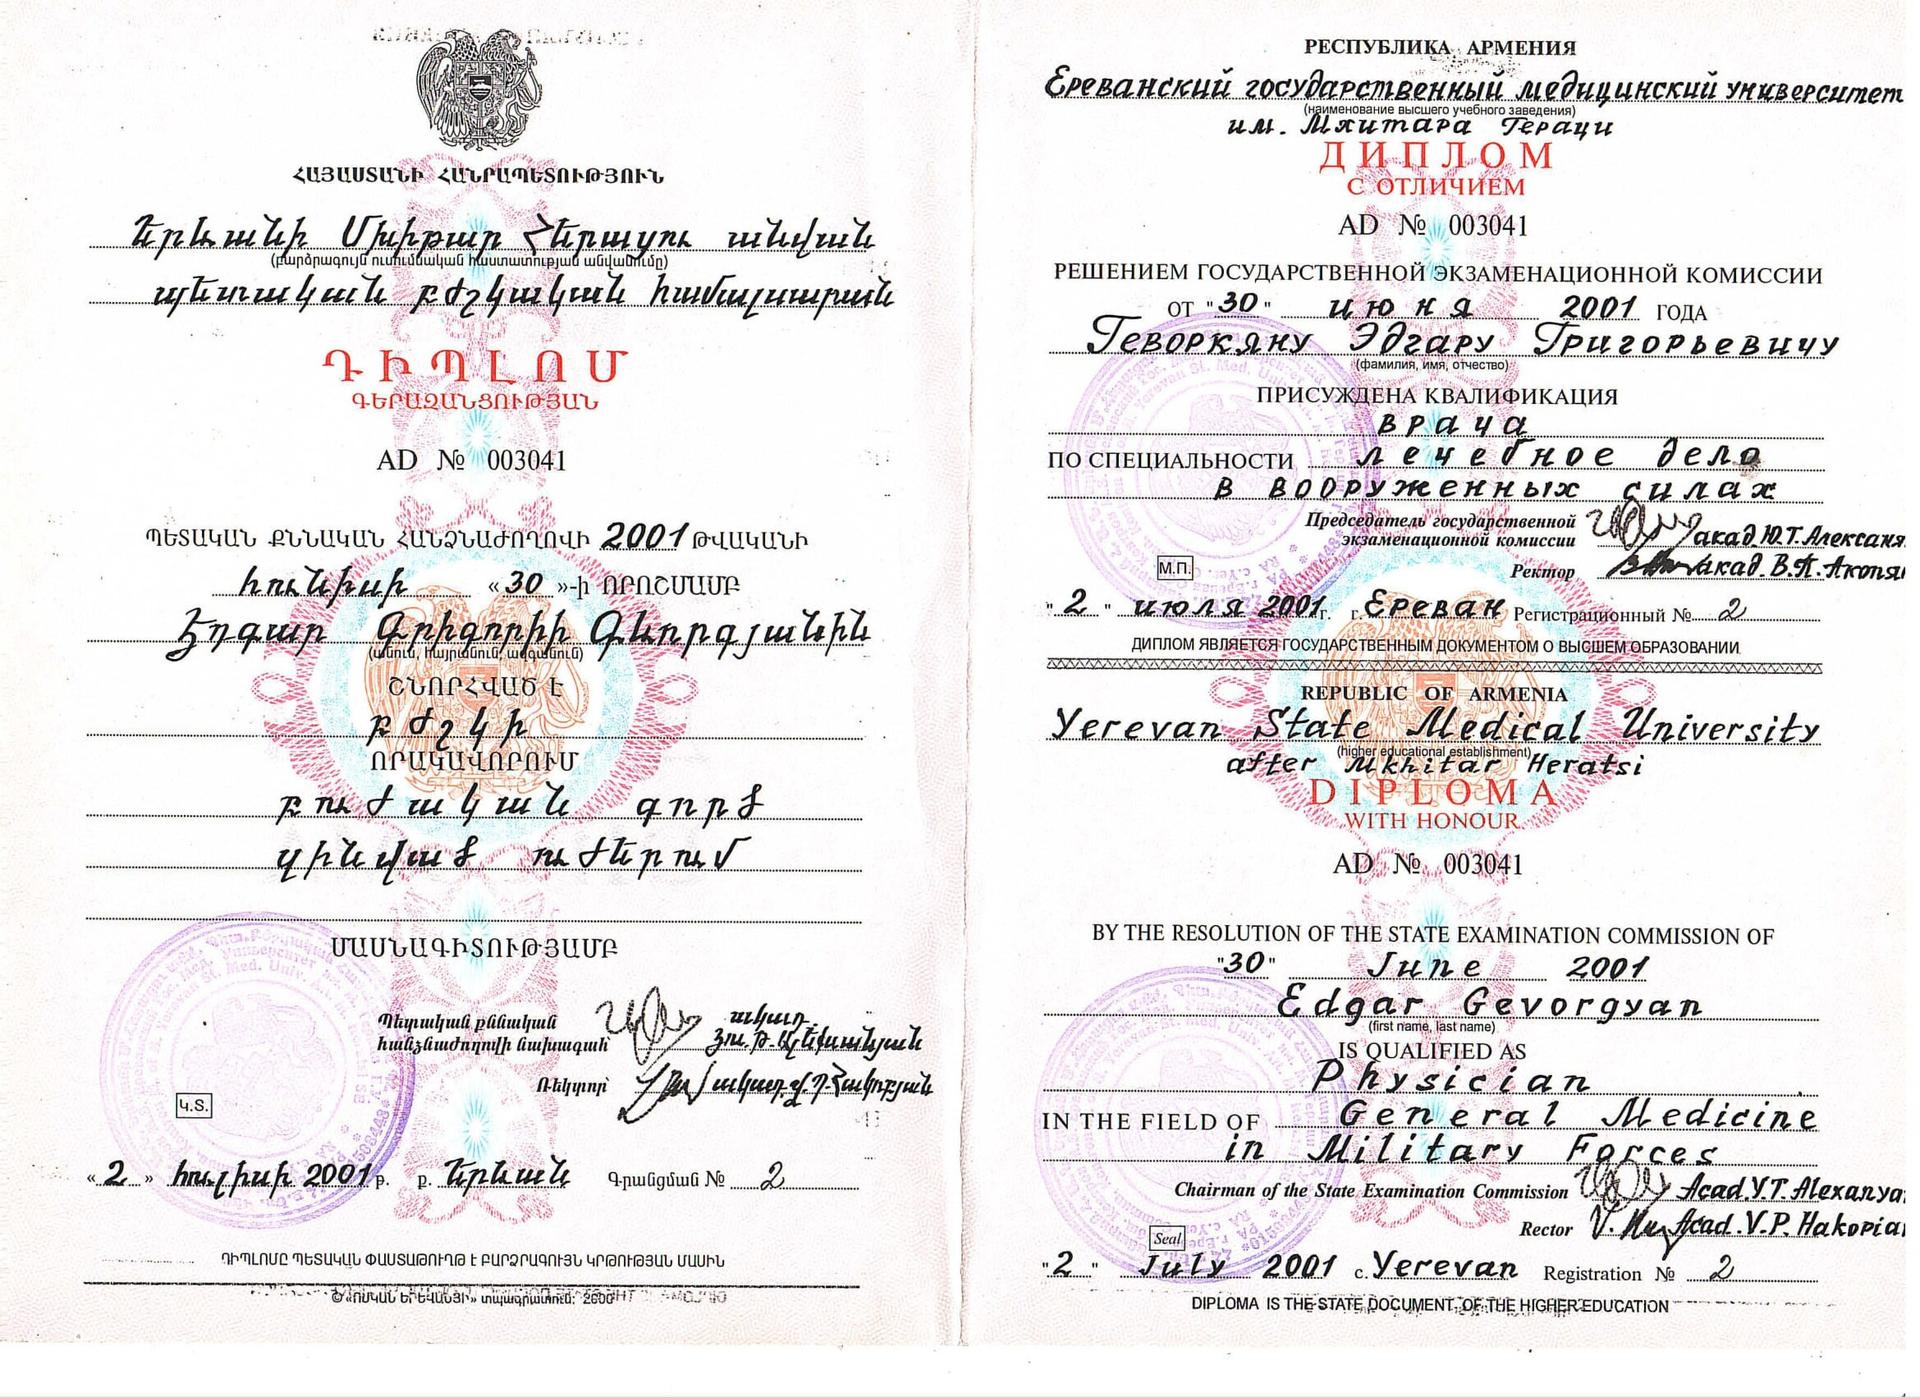 ՀԱՅԱՍՏԱՆԻ ՀԱՆՐԱՊԵՏՈՒԹՅՈՒՆ
Երևանի Մխիթար Հերացու անվան
(բարձրագույն ուսումնական հաստատության անվանումը)
պետական բժշկական համալսարան
ԴԻՊԼՈՄ
ԳԵՐԱԶԱՆՑՈՒԹՅԱՆ
AD № 003041
ՊԵՏԱԿԱՆ ՔՆՆԱԿԱՆ ՀԱՆՁՆԱԺՈՂՈՎԻ 2001 ԹՎԱԿԱՆԻ
հունիսի «30»-ի ՈՐՈՇՄԱՄԲ
Էդգար Գրիգորիի Գևորգյանին
(անուն, հայրանուն, ազգանուն)
ՇՆՈՐՀՎԱԾ Է
բժշկի
ՈՐԱԿԱՎՈՐՈՒՄ
բուժական գործ
զինված ուժերում
ՄԱՍՆԱԳԻՏՈՒԹՅԱՄԲ
Պետական քննական
հանձնաժողովի նախագահ՝ ակադ. Յու.Թ.Ալեքսանյան
Ռեկտոր՝ ակադ. Վ.Պ.Հակոբյան
Կ.Տ.
«2» հուլիսի 2001 թ. ք. Երևան Գրանցման № 2
ԴԻՊԼՈՄԸ ՊԵՏԱԿԱՆ ՓԱՍՏԱԹՈՒՂԹ Է ԲԱՐՁՐԱԳՈՒՅՆ ԿՐԹՈՒԹՅԱՆ ՄԱՍԻՆ
© «ՈՍԿԱՆ ԵՐԵՎԱՆՑԻ» տպագրատուն: 2000
РЕСПУБЛИКА АРМЕНИЯ
Ереванский государственный медицинский университет
(наименование высшего учебного заведения)
им. Мхитара Гераци
ДИПЛОМ
С ОТЛИЧИЕМ
AD № 003041
РЕШЕНИЕМ ГОСУДАРСТВЕННОЙ ЭКЗАМЕНАЦИОННОЙ КОМИССИИ
ОТ "30" июня 2001 ГОДА
Геворкяну Эдгару Григорьевичу
(фамилия, имя, отчество)
ПРИСУЖДЕНА КВАЛИФИКАЦИЯ
врача
ПО СПЕЦИАЛЬНОСТИ лечебное дело
в вооруженных силах
Председатель государственной
экзаменационной комиссии акад. Ю.Т. Алексаня
М.П.
Ректор акад. В.П. Акопя
"2" июля 2001г. г. Ереван Регистрационный № 2
ДИПЛОМ ЯВЛЯЕТСЯ ГОСУДАРСТВЕННЫМ ДОКУМЕНТОМ О ВЫСШЕМ ОБРАЗОВАНИИ
REPUBLIC OF ARMENIA
Yerevan State Medical University
(higher educational establishment)
after Mkhitar Heratsi
DIPLOMA
WITH HONOUR
AD № 003041
BY THE RESOLUTION OF THE STATE EXAMINATION COMMISSION OF
"30" June 2001
Edgar Gevorgyan
(first name, last name)
IS QUALIFIED AS
Physician
IN THE FIELD OF General Medicine
in Military Forces
Chairman of the State Examination Commission Acad. Y.T. Alexanya
Rector Acad. V.P. Hakopia
Seal
"2" July 2001 c. Yerevan Registration № 2
DIPLOMA IS THE STATE DOCUMENT OF THE HIGHER EDUCATION